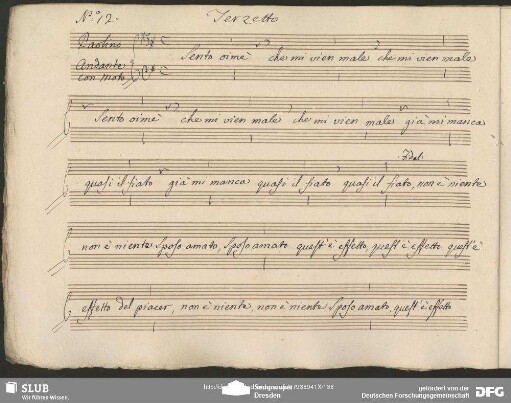 N.º 12. Terzetto
Paolino
Sento oimè che mi vien male che mi vien male
Andante
con moto
Sento oimè che mi vien male che mi vien male già mi manca
Fidal:
quasi il fiato già mi manca quasi il fiato quasi il fiato, non è niente
non è niente Sposo amato, Sposo amato quest' è effetto, quest' è effetto, quest' è
effetto del piacer, non è niente, non è niente Sposo amato, quest' è effetto
SLUB
Wir führen Wissen.
Dresden
gefördert von der
Deutschen Forschungsgemeinschaft
DFG